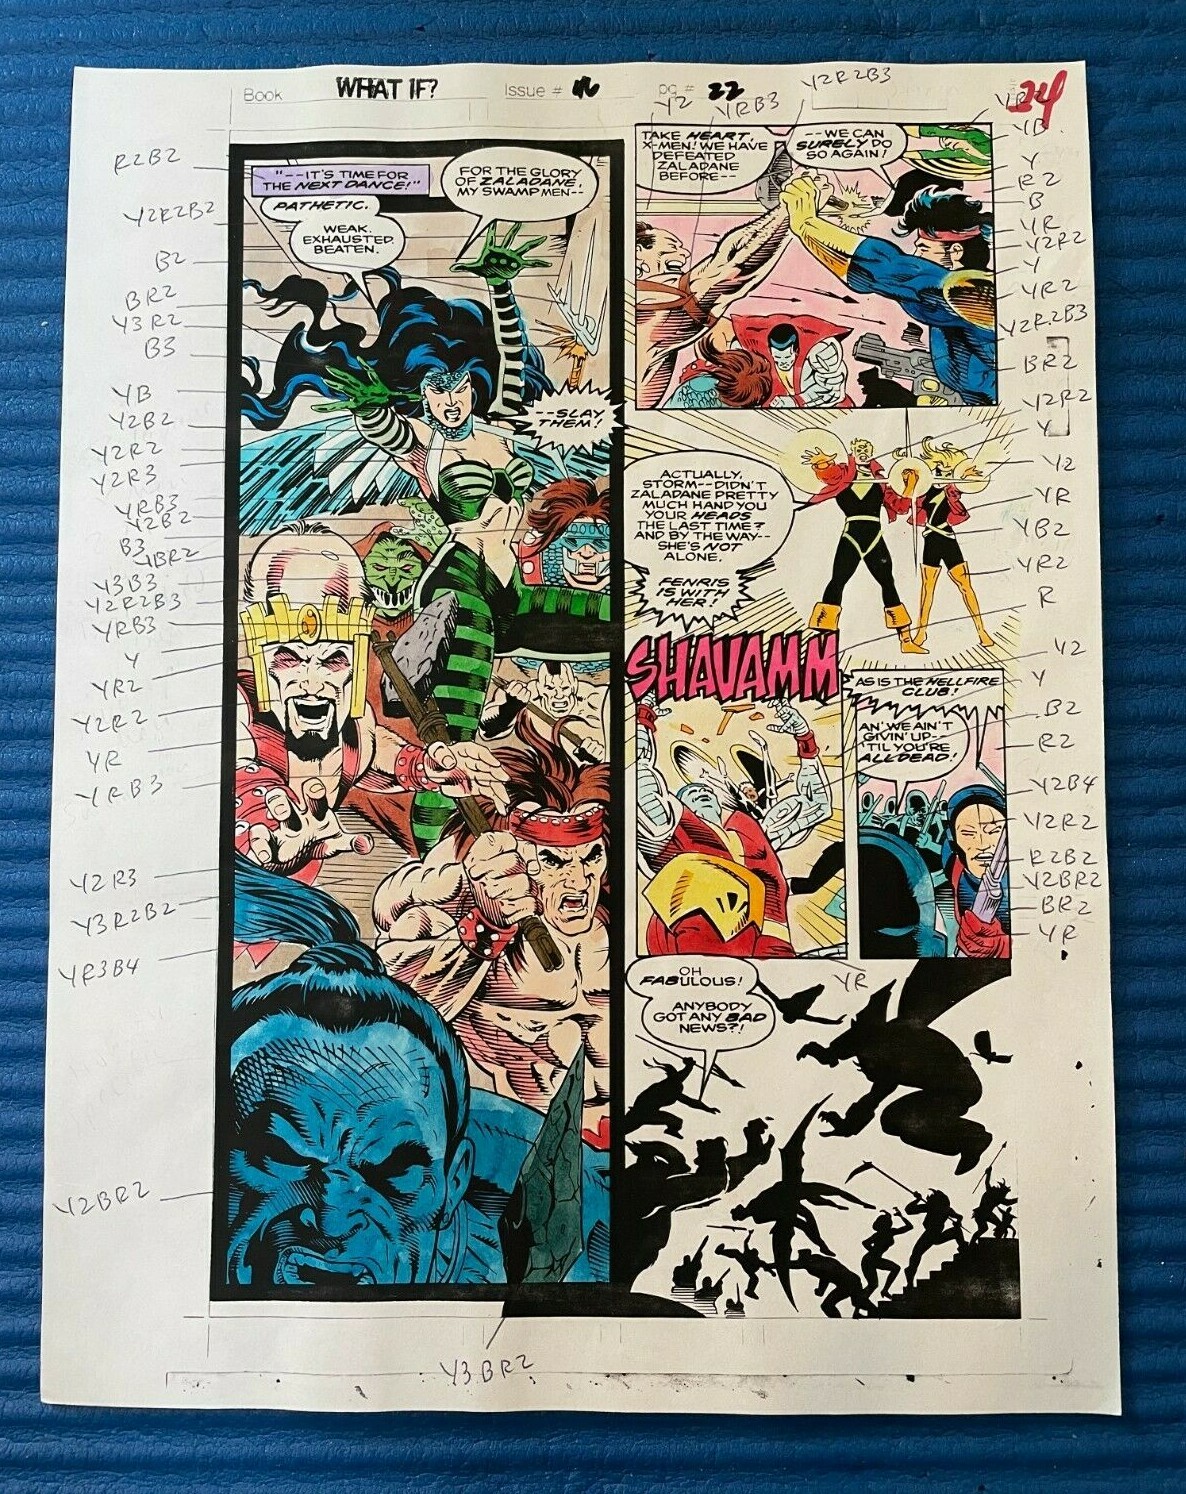 Book WHAT IF? Issue # 46 pg # 22
24
Y2R2B3
Y2
YRB3
R2B2
Y2R2B2
B2
BR2
Y3R2
B3
YB
Y2B2
Y2R2
Y2R3
YRB3
Y2B2
B3
YBR2
Y3B3
Y2R2B3
YRB3
Y
YR2
Y2R2
YR
YRB3
Y2R3
Y3R2B2
YR3B4
Y2BR2
"--IT'S TIME FOR
THE NEXT DANCE!"
PATHETIC.
WEAK.
EXHAUSTED.
BEATEN.
FOR THE GLORY
OF ZALADANE,
MY SWAMP MEN--
--SLAY
THEM!
TAKE HEART,
X-MEN! WE HAVE
DEFEATED
ZALADANE
BEFORE--
--WE CAN
SURELY DO
SO AGAIN!
ACTUALLY,
STORM--DIDN'T
ZALADANE PRETTY
MUCH HAND YOU
YOUR HEADS
THE LAST TIME?
AND BY THE WAY--
SHE'S NOT
ALONE.
FENRIS
IS WITH
HER!
SHAVAMM
AS IS THE HELLFIRE
CLUB!
AN' WE AIN'T
GIVIN' UP--
'TIL YOU'RE
ALL DEAD!
OH
FABULOUS!
ANYBODY
GOT ANY BAD
NEWS?!
YR
YB
Y
R2
B
YR
Y2R2
Y
YR2
Y2R2B3
BR2
Y2R2
Y
Y2
YR
YB2
YR2
R
Y2
Y
B2
R2
Y2B4
Y2R2
R2B2
Y2BR2
BR2
YR
Y3BR2